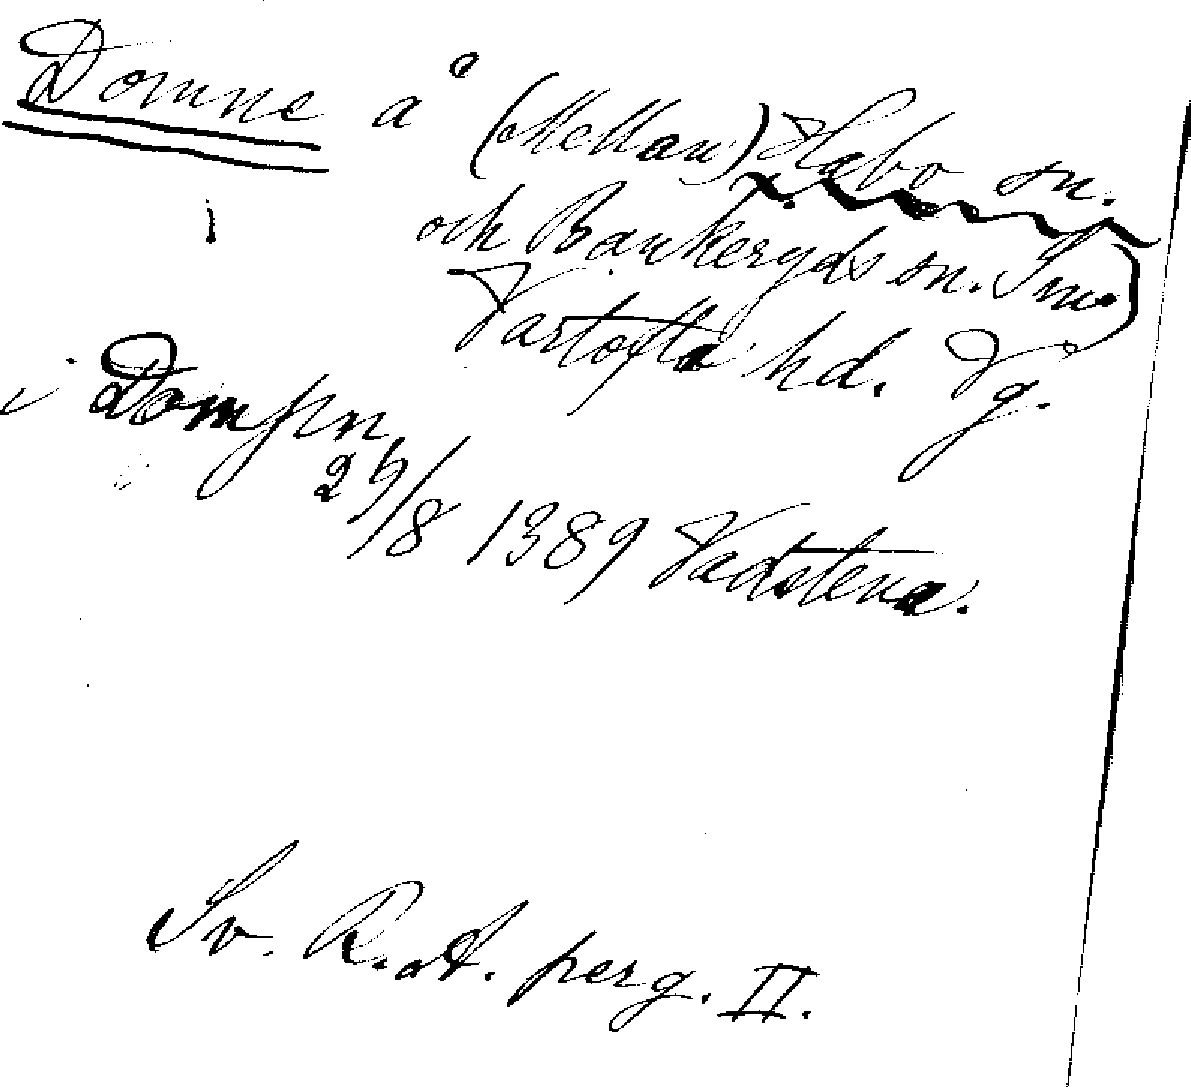 Domne å (Mellan) Habo sn.
och Bankeryds sn. Sm.)
Vartofta hd. Vg.
i Dompn
29/8 1389 Vadstena.
Sv. R.A. perg. II.